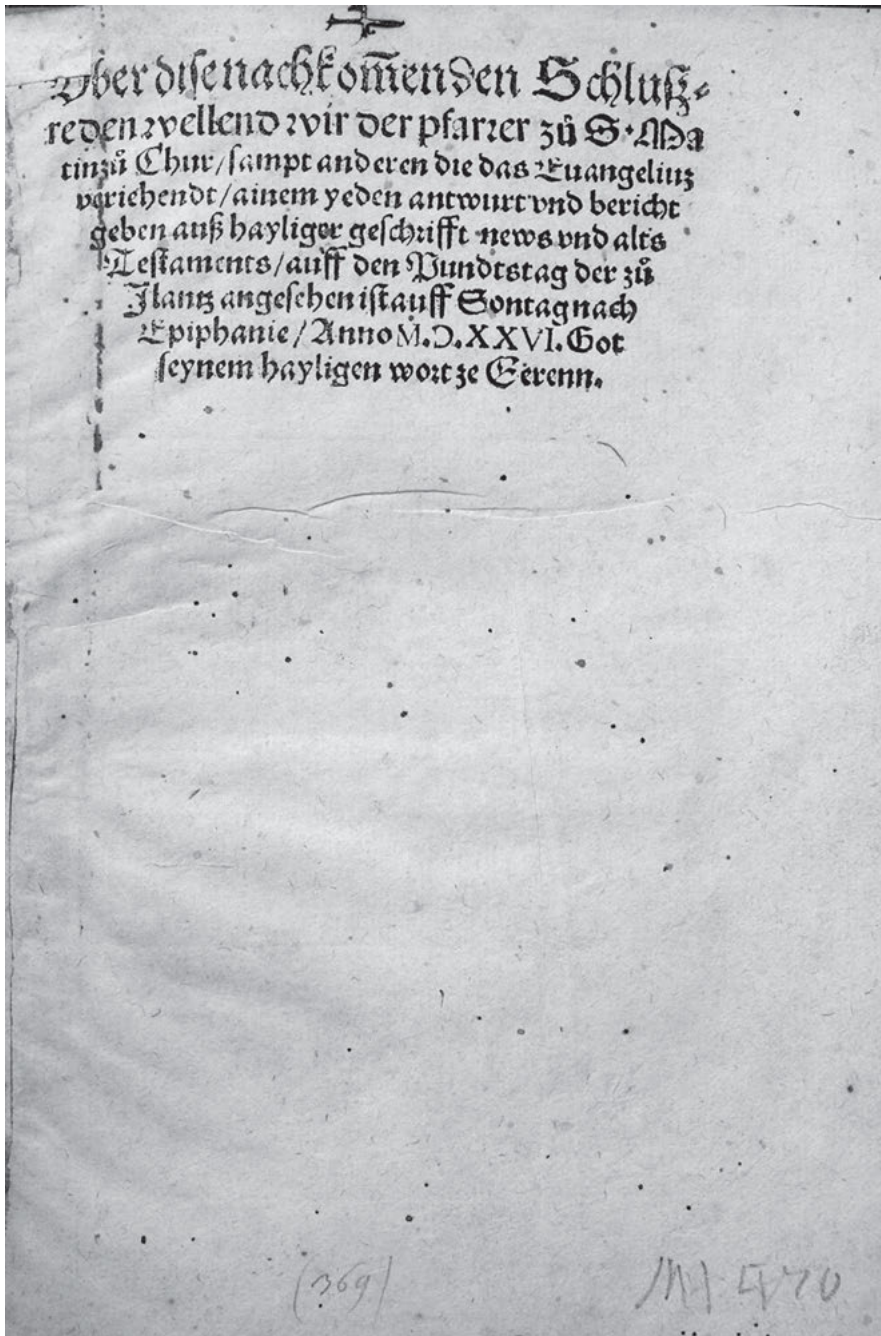 Vber dise nachkom̄enden Schlusz⸗
reden wellend wir der pfarrer zů S. Ma
tin zů Chur/ sampt anderen die das Euangeliuz
veriehendt/ ainem yeden antwurt vnd bericht
geben auß hayliger geschrifft news vnd alts
Testaments/ auff den Pundtstag der zů
Jlantz angesehen ist auff Sontag nach
Epiphanie/ Anno M.D.XXVI. Got
seynem hayligen wort ze Eerenn.
(369)